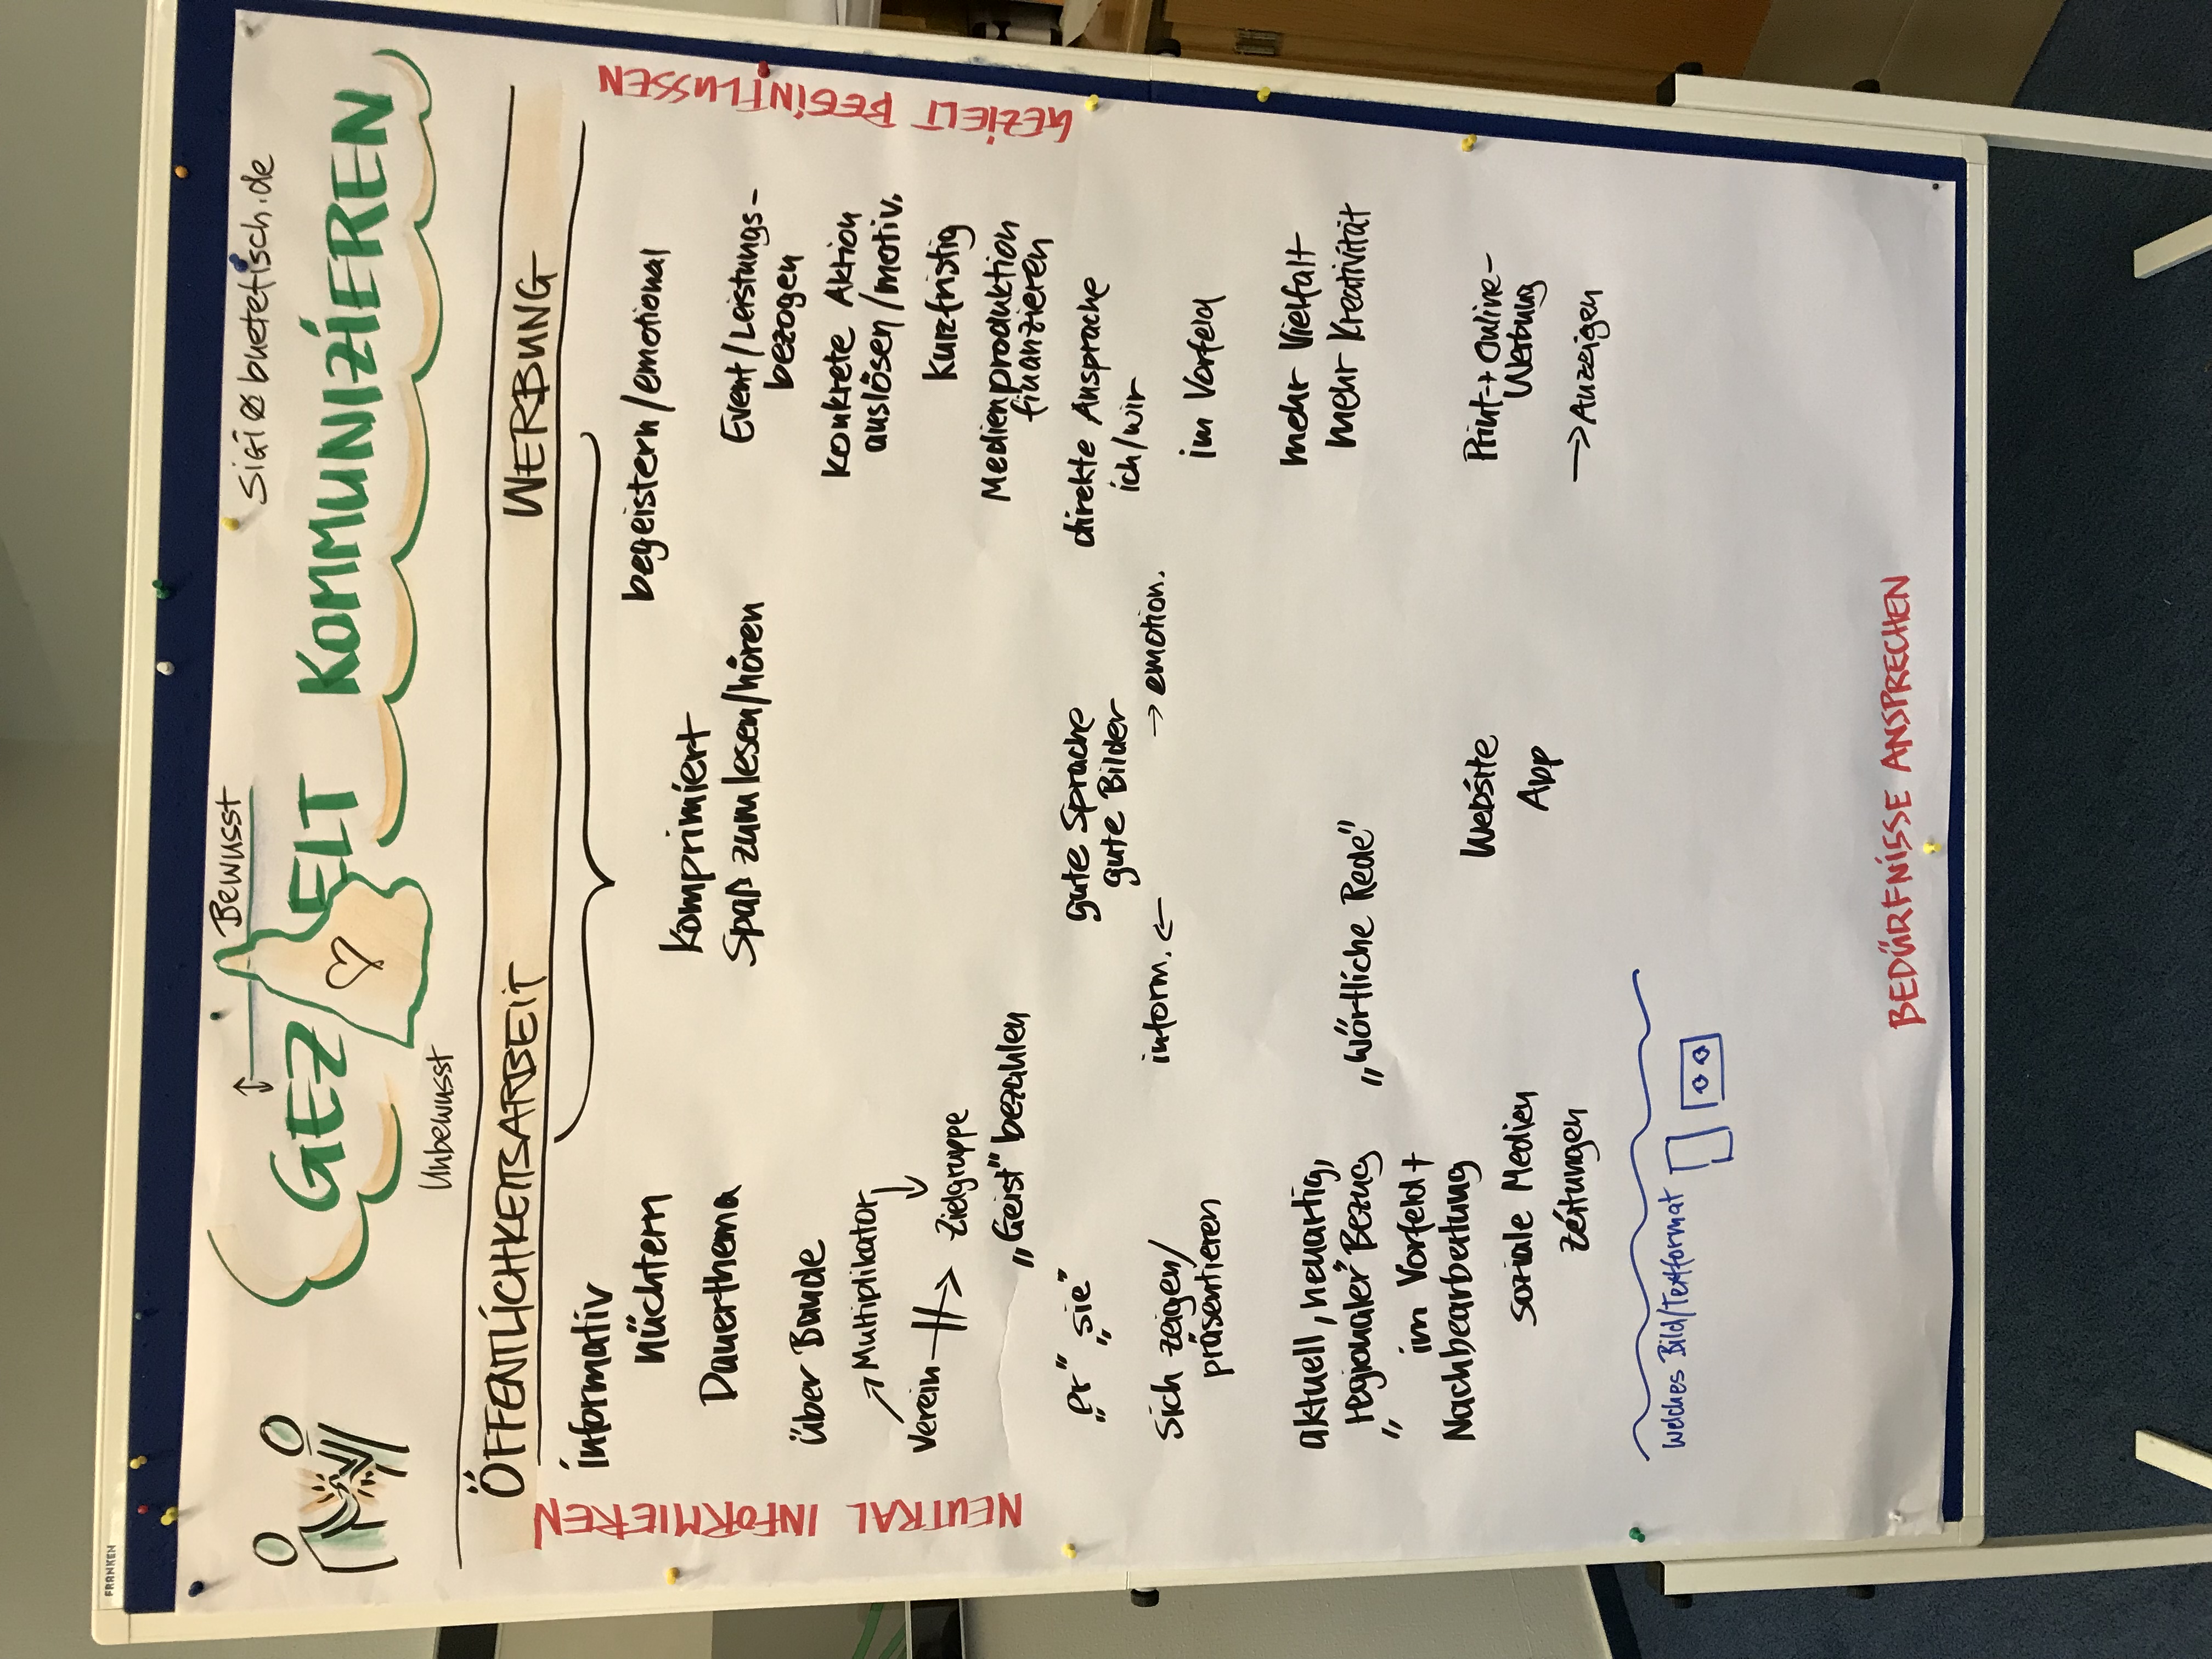 FRANKEN
Sigi@buetefisch.de
Bewusst
GEZIELT KOMMUNIZIEREN
Unbewusst
ÖFFENTLICHKEITSARBEIT
WERBUNG
NEUTRAL INFORMIEREN
informativ
nüchtern
Dauerthema
über Bande
→ Multiplikator
Verein → Zielgruppe
„Geist" bezahlen
„er" „sie"
Sich zeigen/
präsentieren
aktuell, neuartig,
„regionaler" Bezug
im Vorfeld +
Nachbearbeitung
soziale Medien
Zeitungen
Welches Bild/Textformat
komprimiert
Spaß zum lesen/hören
gute Sprache
gute Bilder
inform. ← → emotion.
„Wörtliche Rede"
Website
App
begeistern/emotional
Event/Leistungs-
bezogen
konkrete Aktion
auslösen/motiv.
kurzfristig
Medienproduktion
finanzieren
direkte Ansprache
ich/wir
im Vorfeld
mehr Vielfalt
mehr Kreativität
Print-+Online-
Werbung
→ Anzeigen
GEZIELT BEEINFLUSSEN
BEDÜRFNISSE ANSPRECHEN